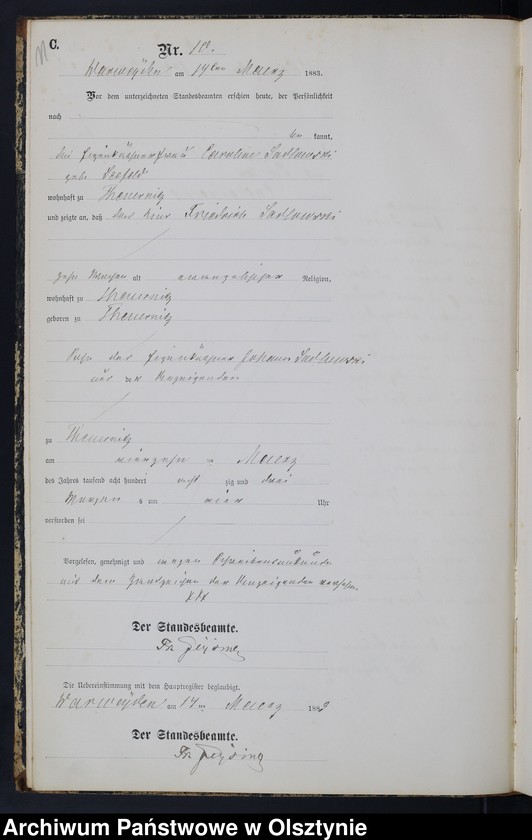 C.
Nr. 10.
Warweyden am 14ten Maerz 1883.
Vor dem unterzeichneten Standesbeamten erschien heute, der Persönlichkeit
nach
be kannt,
die Eigenkäthnerfrau Caroline Sadlowski
geb.
wohnhaft zu Theuernitz
und zeigte an, daß der Friedrich Sadlowski
zehn Wochen alt evangelischer Religion,
wohnhaft zu Theuernitz
geboren zu Theuernitz
Sohn des Eigenkäthner Johann Sadlowski
und der Anzeigenden
zu Theuernitz
am vierzehn ten Maerz
des Jahres tausend acht hundert acht zig und drei
Morgens um vier Uhr
verstorben sei
Vorgelesen, genehmigt und wegen Schreibensunkunde
mit dem Handzeichen der Anzeigenden versehen.
XXX
Der Standesbeamte.
Die Uebereinstimmung mit dem Hauptregister beglaubigt.
Warweyden am 14ten Maerz 188
Der Standesbeamte.
Archiwum Państwowe w Olsztynie